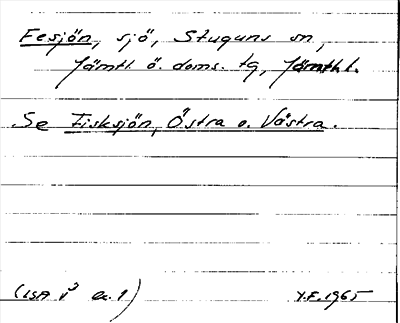 Fesjön, sjö, Stuguns sn,
Jämtl. ö. doms. tg, Jämtl.
Se Fisksjön, Östra o. Västra.
(LSA
Y.F. 1965